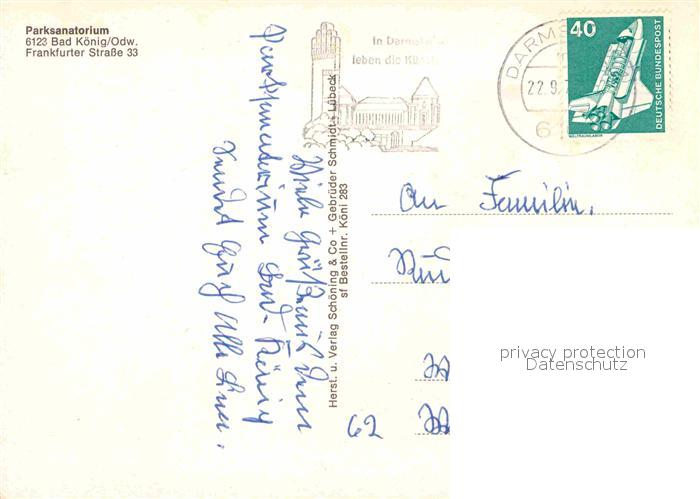 Parksanatorium
6123 Bad König/Odw.
Frankfurter Straße 33
In Darmstadt
leben die Künste
DARMS
22.9.7
6
40
DEUTSCHE BUNDESPOST
WELTRAUMLABOR
Herst. u. Verlag Schöning & Co + Gebrüder Schmidt - Lübeck
sf Bestellnr. Köni 283
Viele Grüße aus dem
Parksanatorium Bad-König
sendet Euch Alle
An Familie
62
privacy protection
Datenschutz